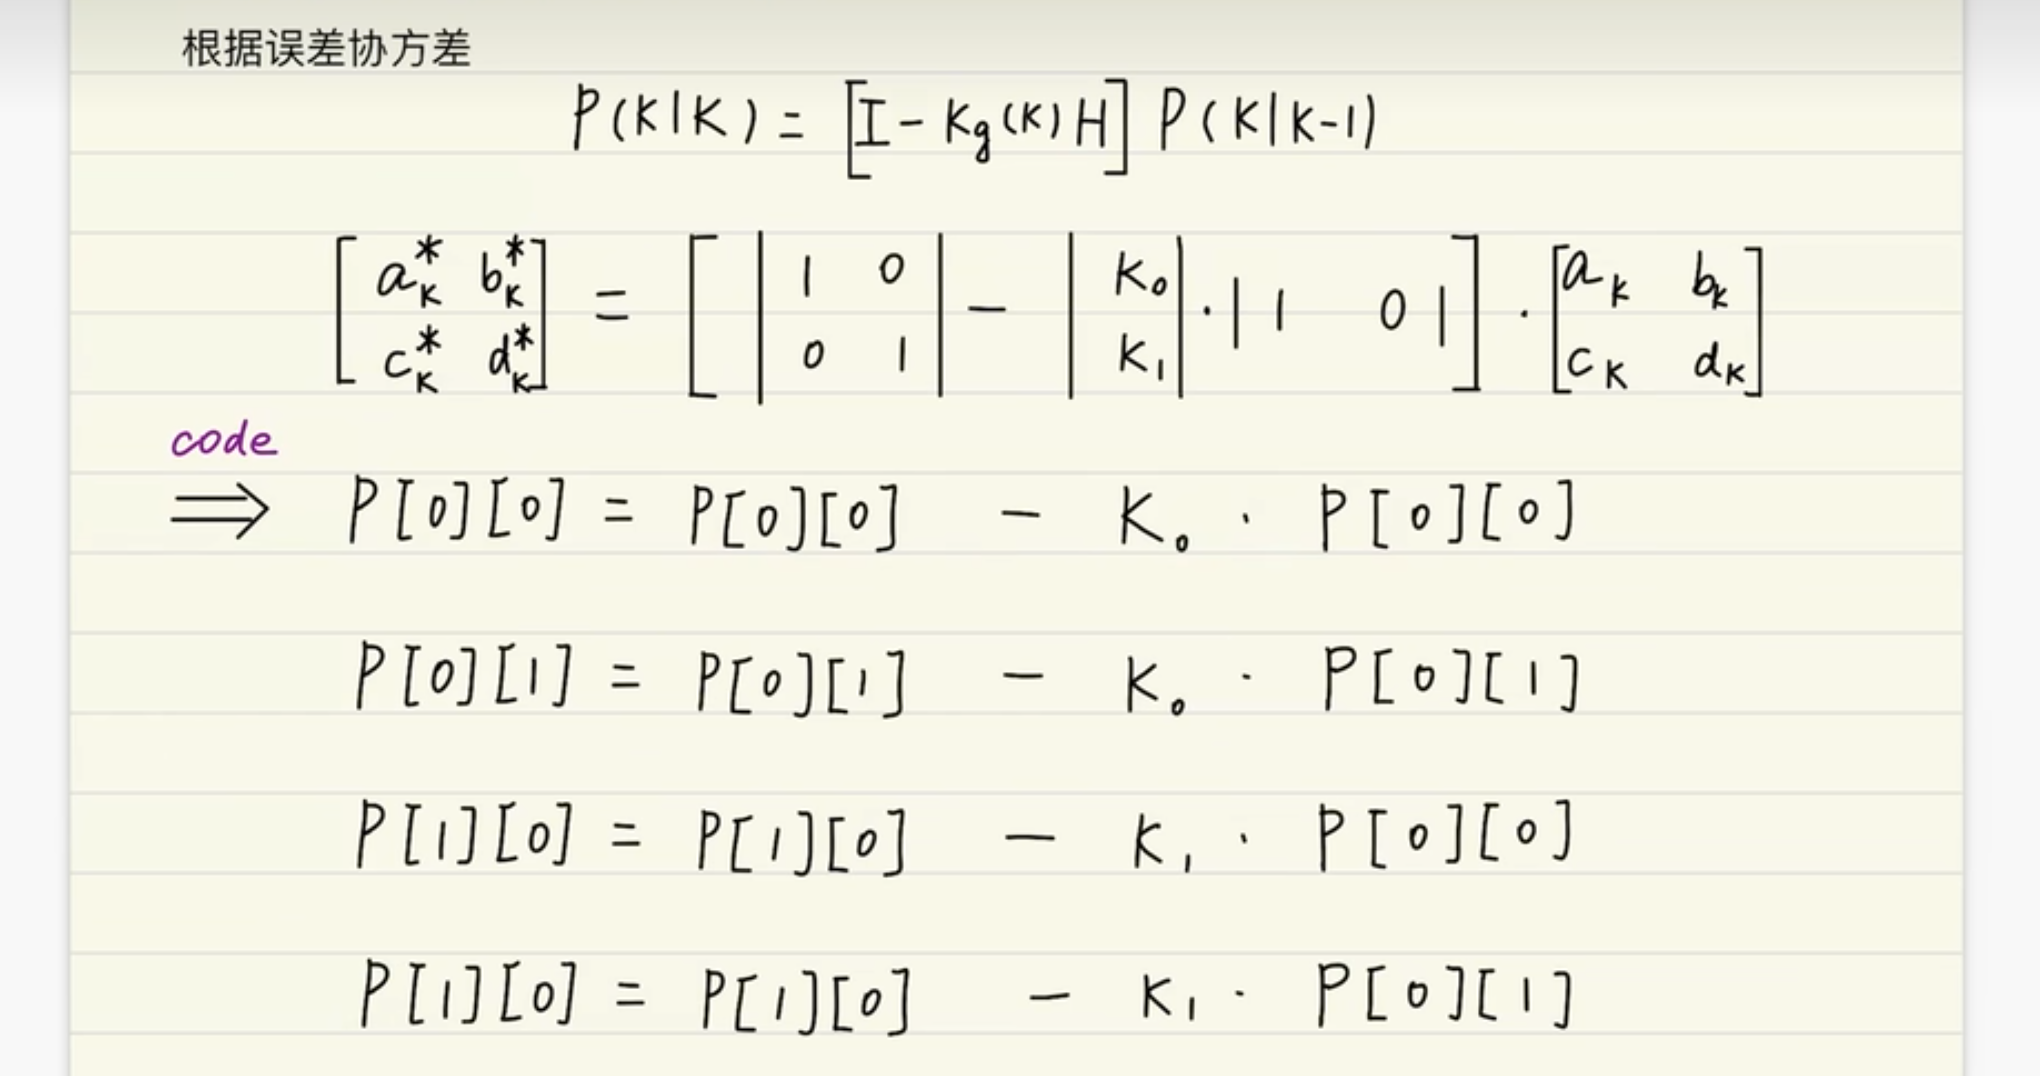 根据误差协方差
P(K|K) = [I - Kg(K) H] P(K|K-1)
[a*K b*K] = [ | 1 0 | - | K₀ | · | 1 0 | ] · [aK bK]
[c*K d*K] | 0 1 | | K₁ | [cK dK]
code
⇒ P[0][0] = P[0][0] - K₀ · P[0][0]
P[0][1] = P[0][1] - K₀ · P[0][1]
P[1][0] = P[1][0] - K₁ · P[0][0]
P[1][0] = P[1][0] - K₁ · P[0][1]